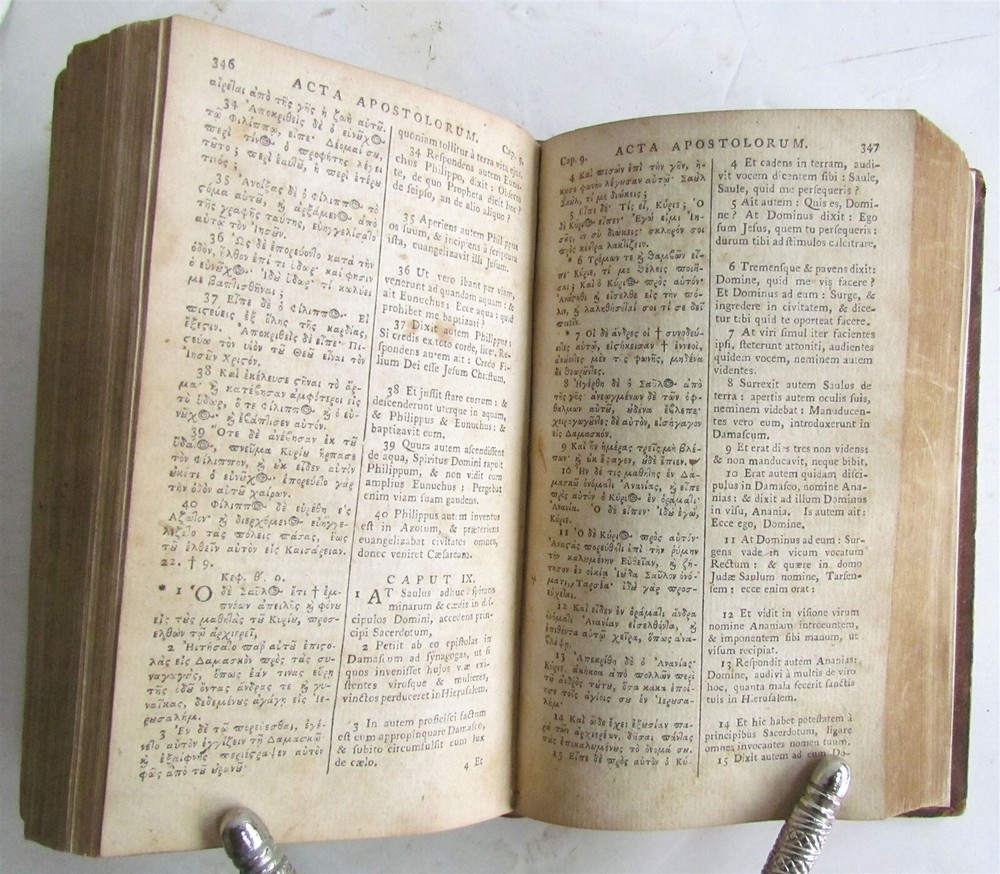 346
ACTA APOSTOLORUM.
Cap. 9.
αἴρεται ἀπὸ τῆς γῆς ἡ ζωὴ αὐτοῦ.
34 Ἀποκριθεὶς δὲ ὁ εὐνοῦχος
τῷ Φιλίππῳ, εἶπε· Δέομαί σου,
περὶ τίνος ὁ προφήτης λέγει
τοῦτο; περὶ ἑαυτοῦ, ἢ περὶ ἑτέρου
τινός;
35 Ἀνοίξας δὲ ὁ Φίλιππος τὸ
στόμα αὑτοῦ, ϗ ἀρξάμενος ἀπὸ
τῆς γραφῆς ταύτης, εὐηγγελίσατο
αὐτῷ τὸν Ἰησοῦν.
36 Ὡς δὲ ἐπορεύοντο κατὰ τὴν
ὁδὸν, ἦλθον ἐπί τι ὕδωρ· καί φησιν
ὁ εὐνοῦχος· Ἰδοὺ ὕδωρ· τί κωλύει
με βαπτισθῆναι;
37 Εἶπε δὲ ὁ Φίλιππος· Εἰ
πιστεύεις ἐξ ὅλης τῆς καρδίας,
ἔξεστιν. Ἀποκριθεὶς δὲ εἶπε· Πι-
στεύω τὸν υἱὸν τοῦ Θεοῦ εἶναι τὸν
Ἰησοῦν Χριστόν.
38 Καὶ ἐκέλευσε στῆναι τὸ ἅρ-
μα· ϗ κατέβησαν ἀμφότεροι εἰς
τὸ ὕδωρ, ὅ τε Φίλιππος ϗ ὁ εὐ-
νοῦχος· ϗ ἐβάπτισεν αὐτόν.
39 Ὅτε δὲ ἀνέβησαν ἐκ τοῦ
ὕδατος, πνεῦμα Κυρίου ἥρπασε
τὸν Φίλιππον, ϗ οὐκ εἶδεν αὐτὸν
οὐκέτι ὁ εὐνοῦχος· ἐπορεύετο γὰρ
τὴν ὁδὸν αὑτοῦ χαίρων.
40 Φίλιππος δὲ εὑρέθη εἰς
Ἄζωτον· ϗ διερχόμενος εὐηγγε-
λίζετο τὰς πόλεις πάσας, ἕως
τοῦ ἐλθεῖν αὐτὸν εἰς Καισάρειαν.
22. † 9.
Κεφ. θʹ. 9.
* 1 Ὁ δὲ Σαῦλος ἔτι † ἐμ-
πνέων ἀπειλῆς ϗ φόνου
εἰς τοὺς μαθητὰς τοῦ Κυρίου, προσ-
ελθὼν τῷ ἀρχιερεῖ,
2 Ἠτήσατο παρ᾽ αὐτοῦ ἐπιστο-
λὰς εἰς Δαμασκὸν πρὸς τὰς συ-
ναγωγὰς, ὅπως ἐάν τινας εὕρῃ
τῆς ὁδοῦ ὄντας ἄνδρας τε ϗ γυ-
ναῖκας, δεδεμένους ἀγάγῃ εἰς Ἱε-
ρουσαλήμ.
3 Ἐν δὲ τῷ πορεύεσθαι, ἐγέ-
νετο αὐτὸν ἐγγίζειν τῇ Δαμασκῷ·
ϗ ἐξαίφνης περιήστραψεν αὐτὸν
φῶς ἀπὸ τοῦ οὐρανοῦ·
quoniam tollitur à terra vita ejus.
34 Respondens autem Eunu-
chus Philippo, dixit: Obsecro
te, de quo Propheta dicit hoc?
de seipso, an de alio aliquo?
35 Aperiens autem Philippus
os suum, & incipiens à scriptura
ista, euangelizavit illi Jesum.
36 Ut vero ibant per viam,
venerunt ad quandam aquam: &
ait Eunuchus: Ecce aqua: quid
prohibet me baptizari?
37 Dixit autem Philippus:
Si credis ex toto corde, licet. Re-
spondens autem ait: Credo Fi-
lium Dei esse Jesum Christum.
38 Et jussit stare currum: &
descenderunt uterque in aquam,
& Philippus & Eunuchus: &
baptizavit eum.
39 Quum autem ascendissent
de aqua, Spiritus Domini rapuit
Philippum, & non vidit eum
amplius Eunuchus: Pergebat
enim viam suam gaudens.
40 Philippus autem inventus
est in Azotum, & præteriens
euangelizabat civitates omnes,
donec veniret Cæsaream.
CAPUT IX.
1 AT Saulus adhuc spirans
minarum & cædis in dis-
cipulos Domini, accedens prin-
cipi Sacerdotum,
2 Petiit ab eo epistolas in
Damascum ad synagogas, ut si
quos invenisset hujus viæ exi-
stentes virosque & mulieres,
vinctos perduceret in Hierusalem.
3 In autem proficisci factum
est eum appropinquare Damasco,
& subito circumfulsit eum lux
de cælo.
4 Et
ACTA APOSTOLORUM.
347
Cap. 9.
4 Καὶ πεσὼν ἐπὶ τὴν γῆν, ἤ-
κουσε φωνὴν λέγουσαν αὐτῷ· Σαοὺλ
Σαοὺλ, τί με διώκεις;
5 Εἶπε δέ· Τίς εἶ, Κύριε; Ὁ
δὲ Κύριος εἶπεν· Ἐγώ εἰμι Ἰη-
σοῦς, ὃν σὺ διώκεις· σκληρόν σοι
πρὸς κέντρα λακτίζειν.
* 6 Τρέμων τε ϗ θαμβῶν εἶ-
πε· Κύριε, τί με θέλεις ποιῆ-
σαι; Καὶ ὁ Κύριος πρὸς αὐτόν·
Ἀνάστηθι ϗ εἴσελθε εἰς τὴν πό-
λιν, ϗ λαληθήσεταί σοι τί σε δεῖ
ποιεῖν.
* 7 Οἱ δὲ ἄνδρες οἱ † συνοδεύ-
οντες αὐτῷ, εἱστήκεισαν † ἐννεοὶ,
ἀκούοντες μὲν τῆς φωνῆς, μηδένα
δὲ θεωροῦντες.
8 Ἠγέρθη δὲ ὁ Σαῦλος ἀπὸ
τῆς γῆς· ἀνεῳγμένων δὲ τῶν ὀφ-
θαλμῶν αὐτοῦ, οὐδένα ἔβλεπε·
χειραγωγοῦντες δὲ αὐτὸν, εἰσήγαγον
εἰς Δαμασκόν.
9 Καὶ ἦν ἡμέρας τρεῖς μὴ βλέ-
πων· ϗ οὐκ ἔφαγεν, οὐδὲ ἔπιεν.
10 Ἦν δέ τις μαθητὴς ἐν Δα-
μασκῷ ὀνόματι Ἀνανίας, ϗ εἶπε
πρὸς αὐτὸν ὁ Κύριος ἐν ὁράματι·
Ἀνανία. Ὁ δὲ εἶπεν· Ἰδοὺ ἐγὼ,
Κύριε.
11 Ὁ δὲ Κύριος πρὸς αὐτόν·
Ἀναστὰς πορεύθητι ἐπὶ τὴν ῥύμην
τὴν καλουμένην Εὐθεῖαν, ϗ ζή-
τησον ἐν οἰκίᾳ Ἰούδα Σαῦλον ὀνό-
ματι, Ταρσέα· ἰδοὺ γὰρ προσ-
εύχεται.
12 Καὶ εἶδεν ἐν ὁράματι ἄνδρα
ὀνόματι Ἀνανίαν εἰσελθόντα, ϗ
ἐπιθέντα αὐτῷ χεῖρα, ὅπως ἀνα-
βλέψῃ.
13 Ἀπεκρίθη δὲ ὁ Ἀνανίας·
Κύριε, ἀκήκοα ἀπὸ πολλῶν περὶ
τοῦ ἀνδρὸς τούτου, ὅσα κακὰ ἐποί-
ησε τοῖς ἁγίοις σου ἐν Ἱερουσα-
λήμ.
14 Καὶ ὧδε ἔχει ἐξουσίαν πα-
ρὰ τῶν ἀρχιερέων, δῆσαι πάντας
τοὺς ἐπικαλουμένους τὸ ὄνομά σου.
15 Εἶπε δὲ πρὸς αὐτὸν ὁ Κύ-
4 Et cadens in terram, audi-
vit vocem dicentem sibi: Saule,
Saule, quid me persequeris?
5 Ait autem: Quis es, Domi-
ne? At Dominus dixit: Ego
sum Jesus, quem tu persequeris:
durum tibi ad stimulos calcitrare.
6 Tremensque & pavens dixit:
Domine, quid me vis facere?
Et Dominus ad eum: Surge, &
ingredere in civitatem, & dice-
tur tibi quid te oporteat facere.
7 At viri simul iter facientes
ipsi, steterunt attoniti, audientes
quidem vocem, neminem autem
videntes.
8 Surrexit autem Saulus de
terra: apertis autem oculis suis,
neminem videbat: Manuducen-
tes vero eum, introduxerunt in
Damascum.
9 Et erat dies tres non videns:
& non manducavit, neque bibit.
10 Erat autem quidam disci-
pulus in Damasco, nomine Ana-
nias: & dixit ad illum Dominus
in visu, Anania. Is autem ait:
Ecce ego, Domine.
11 At Dominus ad eum: Sur-
gens vade in vicum vocatum
Rectum: & quære in domo
Judæ Saulum nomine, Tarsen-
sem: ecce enim orat:
12 Et vidit in visione virum
nomine Ananiam introeuntem,
& imponentem sibi manum, ut
visum recipiat.
13 Respondit autem Ananias:
Domine, audivi à multis de viro
hoc, quanta mala fecerit sanctis
tuis in Hierusalem.
14 Et hic habet potestatem à
principibus Sacerdotum, ligare
omnes invocantes nomen tuum.
15 Dixit autem ad eum Do-